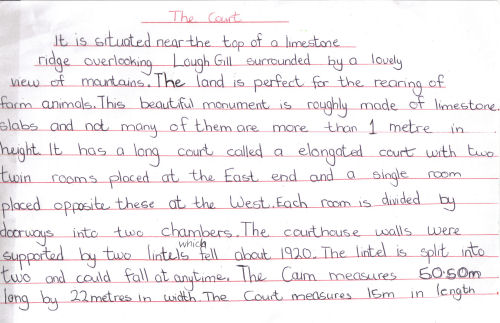 The Court
It is situated near the top of a limestone
ridge overlooking Lough Gill surrounded by a lovely
view of mountains. The land is perfect for the rearing of
farm animals. This beautiful monument is roughly made of limestone
slabs and not many of them are more than 1 metre in
height. It has a long court called a elongated court with two
twin rooms placed at the East end and a single room
placed opposite these at the West. Each room is divided by
doorways into two chambers. The courthouse walls were
supported by two lintels which fell about 1920. The lintel is split into
two and could fall at anytime. The Cairn measures 50.50m
long by 22metres in width. The Court measures 15m in length.